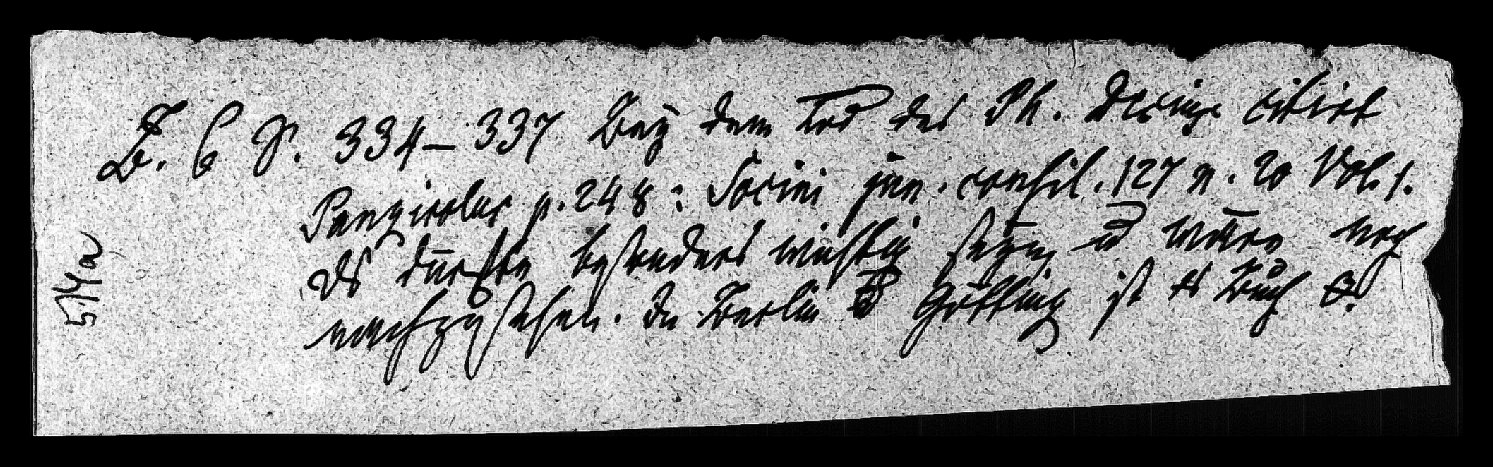 B. 6 S. 334–337 Bey dem Tod des Ph. Decius citirt
Panzirolus p. 248: Socini jun. consil. 127 n. 20 Vol. 1.
ds dürfte besonders wichtig seyn u wäre noch
nachzusehen. In Berlin Götting ist ds Buch
514a